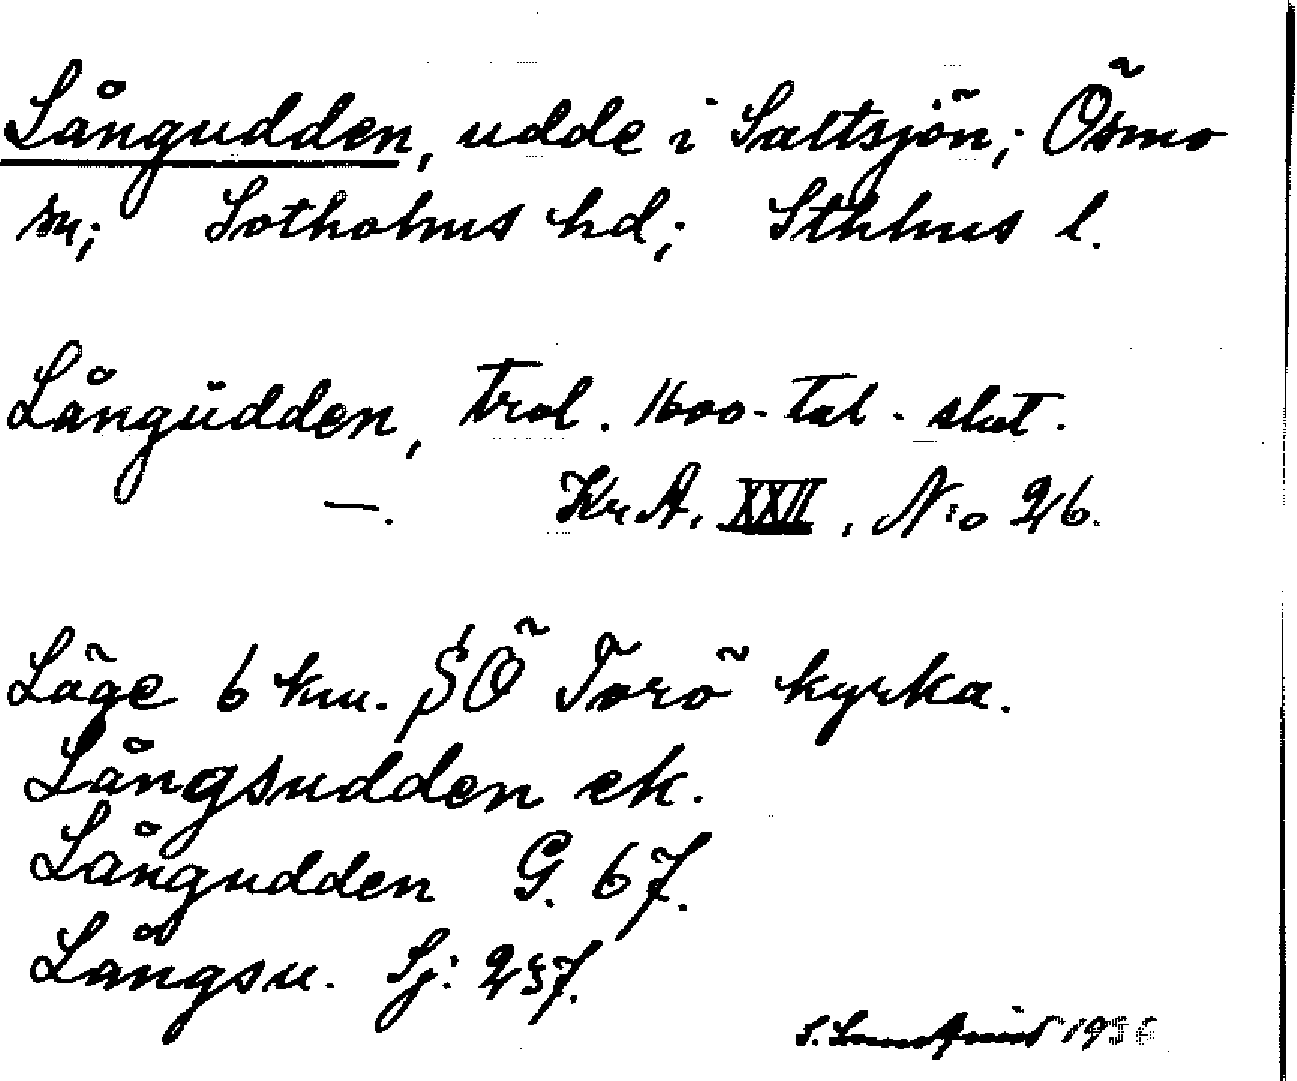 Långudden, udde i Saltsjön; Ösmo
sn; Sotholms hd; Sthlms l.
Långüdden, trol. 1600-tal-slut.
—. Kr. A. XXII, N:o 26.
Läge 6 km. SÖ Torö kyrka.
Långsudden ek.
Långudden G. 67.
Långsu. Sj: 237.
S. 19